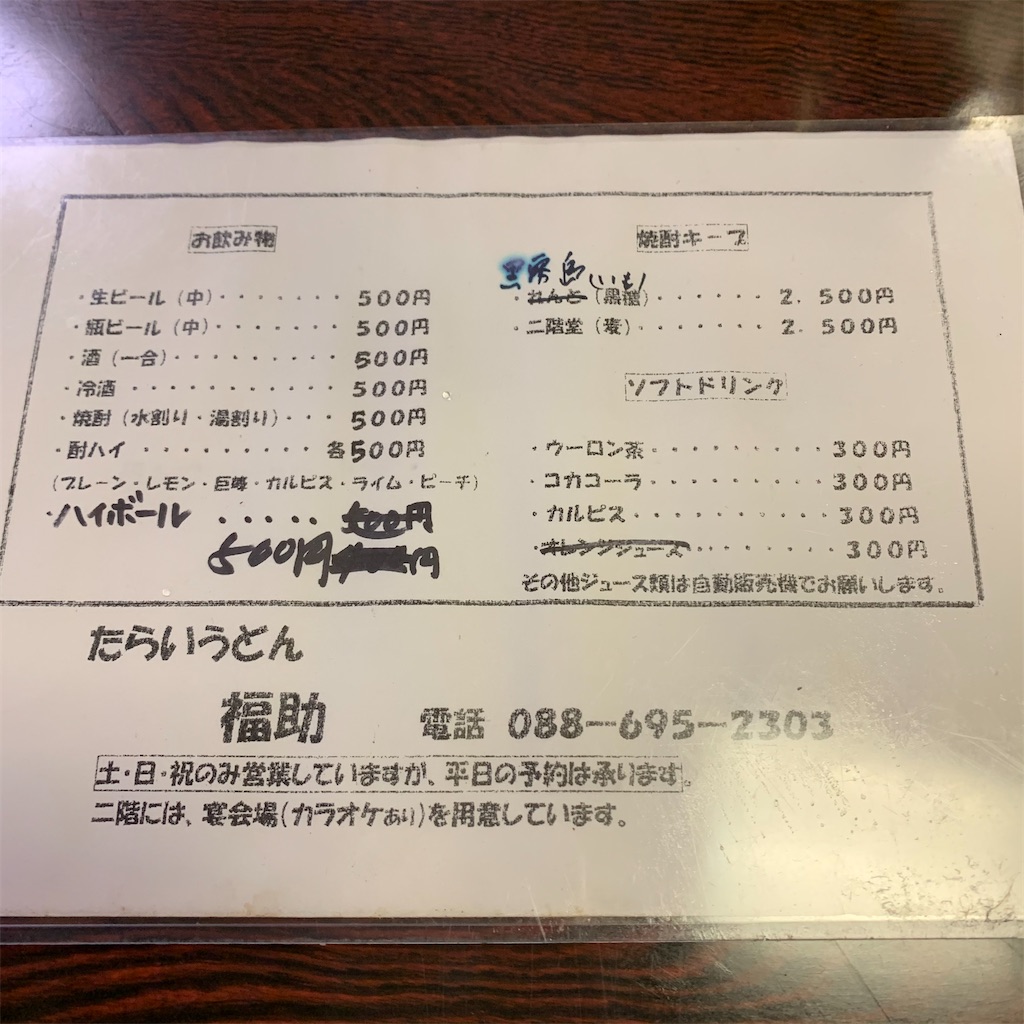 お飲み物
・生ビール（中）・・・・・・・ 500円
・瓶ビール（中）・・・・・・・ 500円
・酒（一合）・・・・・・・・・ 500円
・冷酒 ・・・・・・・・・・・ 500円
・焼酎（水割り・湯割り）・・・ 500円
・酎ハイ ・・・・・・・・・ 各500円
（プレーン・レモン・巨峰・カルピス・ライム・ピーチ）
・ハイボール ・・・・・ 500円
500円 円
焼酎キープ
黒霧島（いも）
・れんと（黒糖）・・・・・・ 2．500円
・二階堂（麦）・・・・・・・ 2．500円
ソフトドリンク
・ウーロン茶・・・・・・・・・ 300円
・コカコーラ・・・・・・・・・ 300円
・カルピス・・・・・・・・・・ 300円
・オレンジジュース・・・・・・・ 300円
その他ジュース類は自動販売機でお願いします。
たらいうどん
福助 電話 088－695－2303
土・日・祝のみ営業していますが、平日の予約は承ります。
二階には、宴会場（カラオケあり）を用意しています。